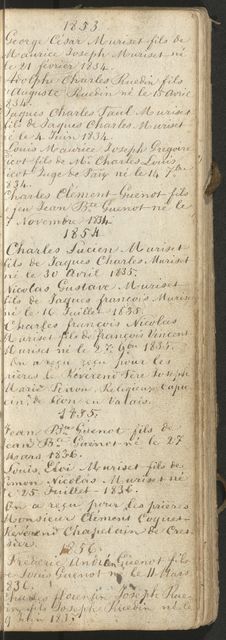 1853
George César Muriset fils de
Maurice Joseph Muriset né
le 21 février 1834.
Adolphe Charles Ruedin fils
Auguste Ruedin né le 15 Avril
1834.
Jaques Charles Paul Muriset
fils de Jaques Charles Muriset
né le 4 Juin 1834.
Louis Maurice Joseph Grégoire
fils de Mr. Charles Louis
Juge de Paix né le 14
1834.
Charles Clément Guenot fils
feu Jean Bte Guenot né le
7 Novembre 1834.
1854
Charles Lucien Muriset
fils de Jaques Charles Muriset
né le 30 Avril 1835.
Nicolas Gustave Muriset
fils de Jaques françois Muriset
né le 16 Juillet 1835.
Charles françois Nicolas
Muriset fils de françois Vincent
Muriset né le 7. 1835.
On a reçu pour les
prières le Révérend Père Joseph
Marie Religieux Capu
cin de Sion en Valais.
1855.
Jean Bte Guenot fils de
Jean Bte Guenot né le 27
Mars 1836.
Louis Eloi Muriset fils de
Simon Nicolas Muriset né
le 25 Juillet 1836.
On a reçu pour les prières
Monsieur Clément Coques
Révérend Chapelain de Cres
sier.
1856.
Fréderic Guenot fils
de Louis Guenot né le 11 Mars
1836.
Charles florentin Joseph Rue
din fils Joseph Ruedin né
Juin 1837